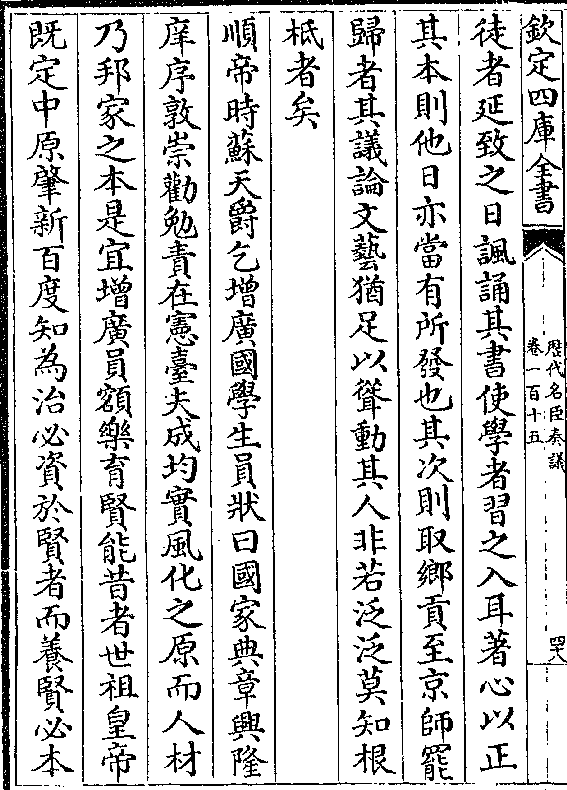 欽定四庫全書
歴代名臣奏議
卷一百十五
四八
徒者延致之日諷誦其書使學者習之入耳著心以正
其本則他日亦當有所發也其次則取鄉貢至京師罷
歸者其議論文藝猶足以聳動其人非若泛泛莫知根
柢者矣
順帝時蘇天爵乞增廣國學生員狀曰國家典章興隆
庠序敦崇勸勉責在憲臺夫成均實風化之原而人材
乃邦家之本是宜增廣員額樂育賢能昔者世祖皇帝
既定中原肇新百度知為治必資於賢者而養賢必本